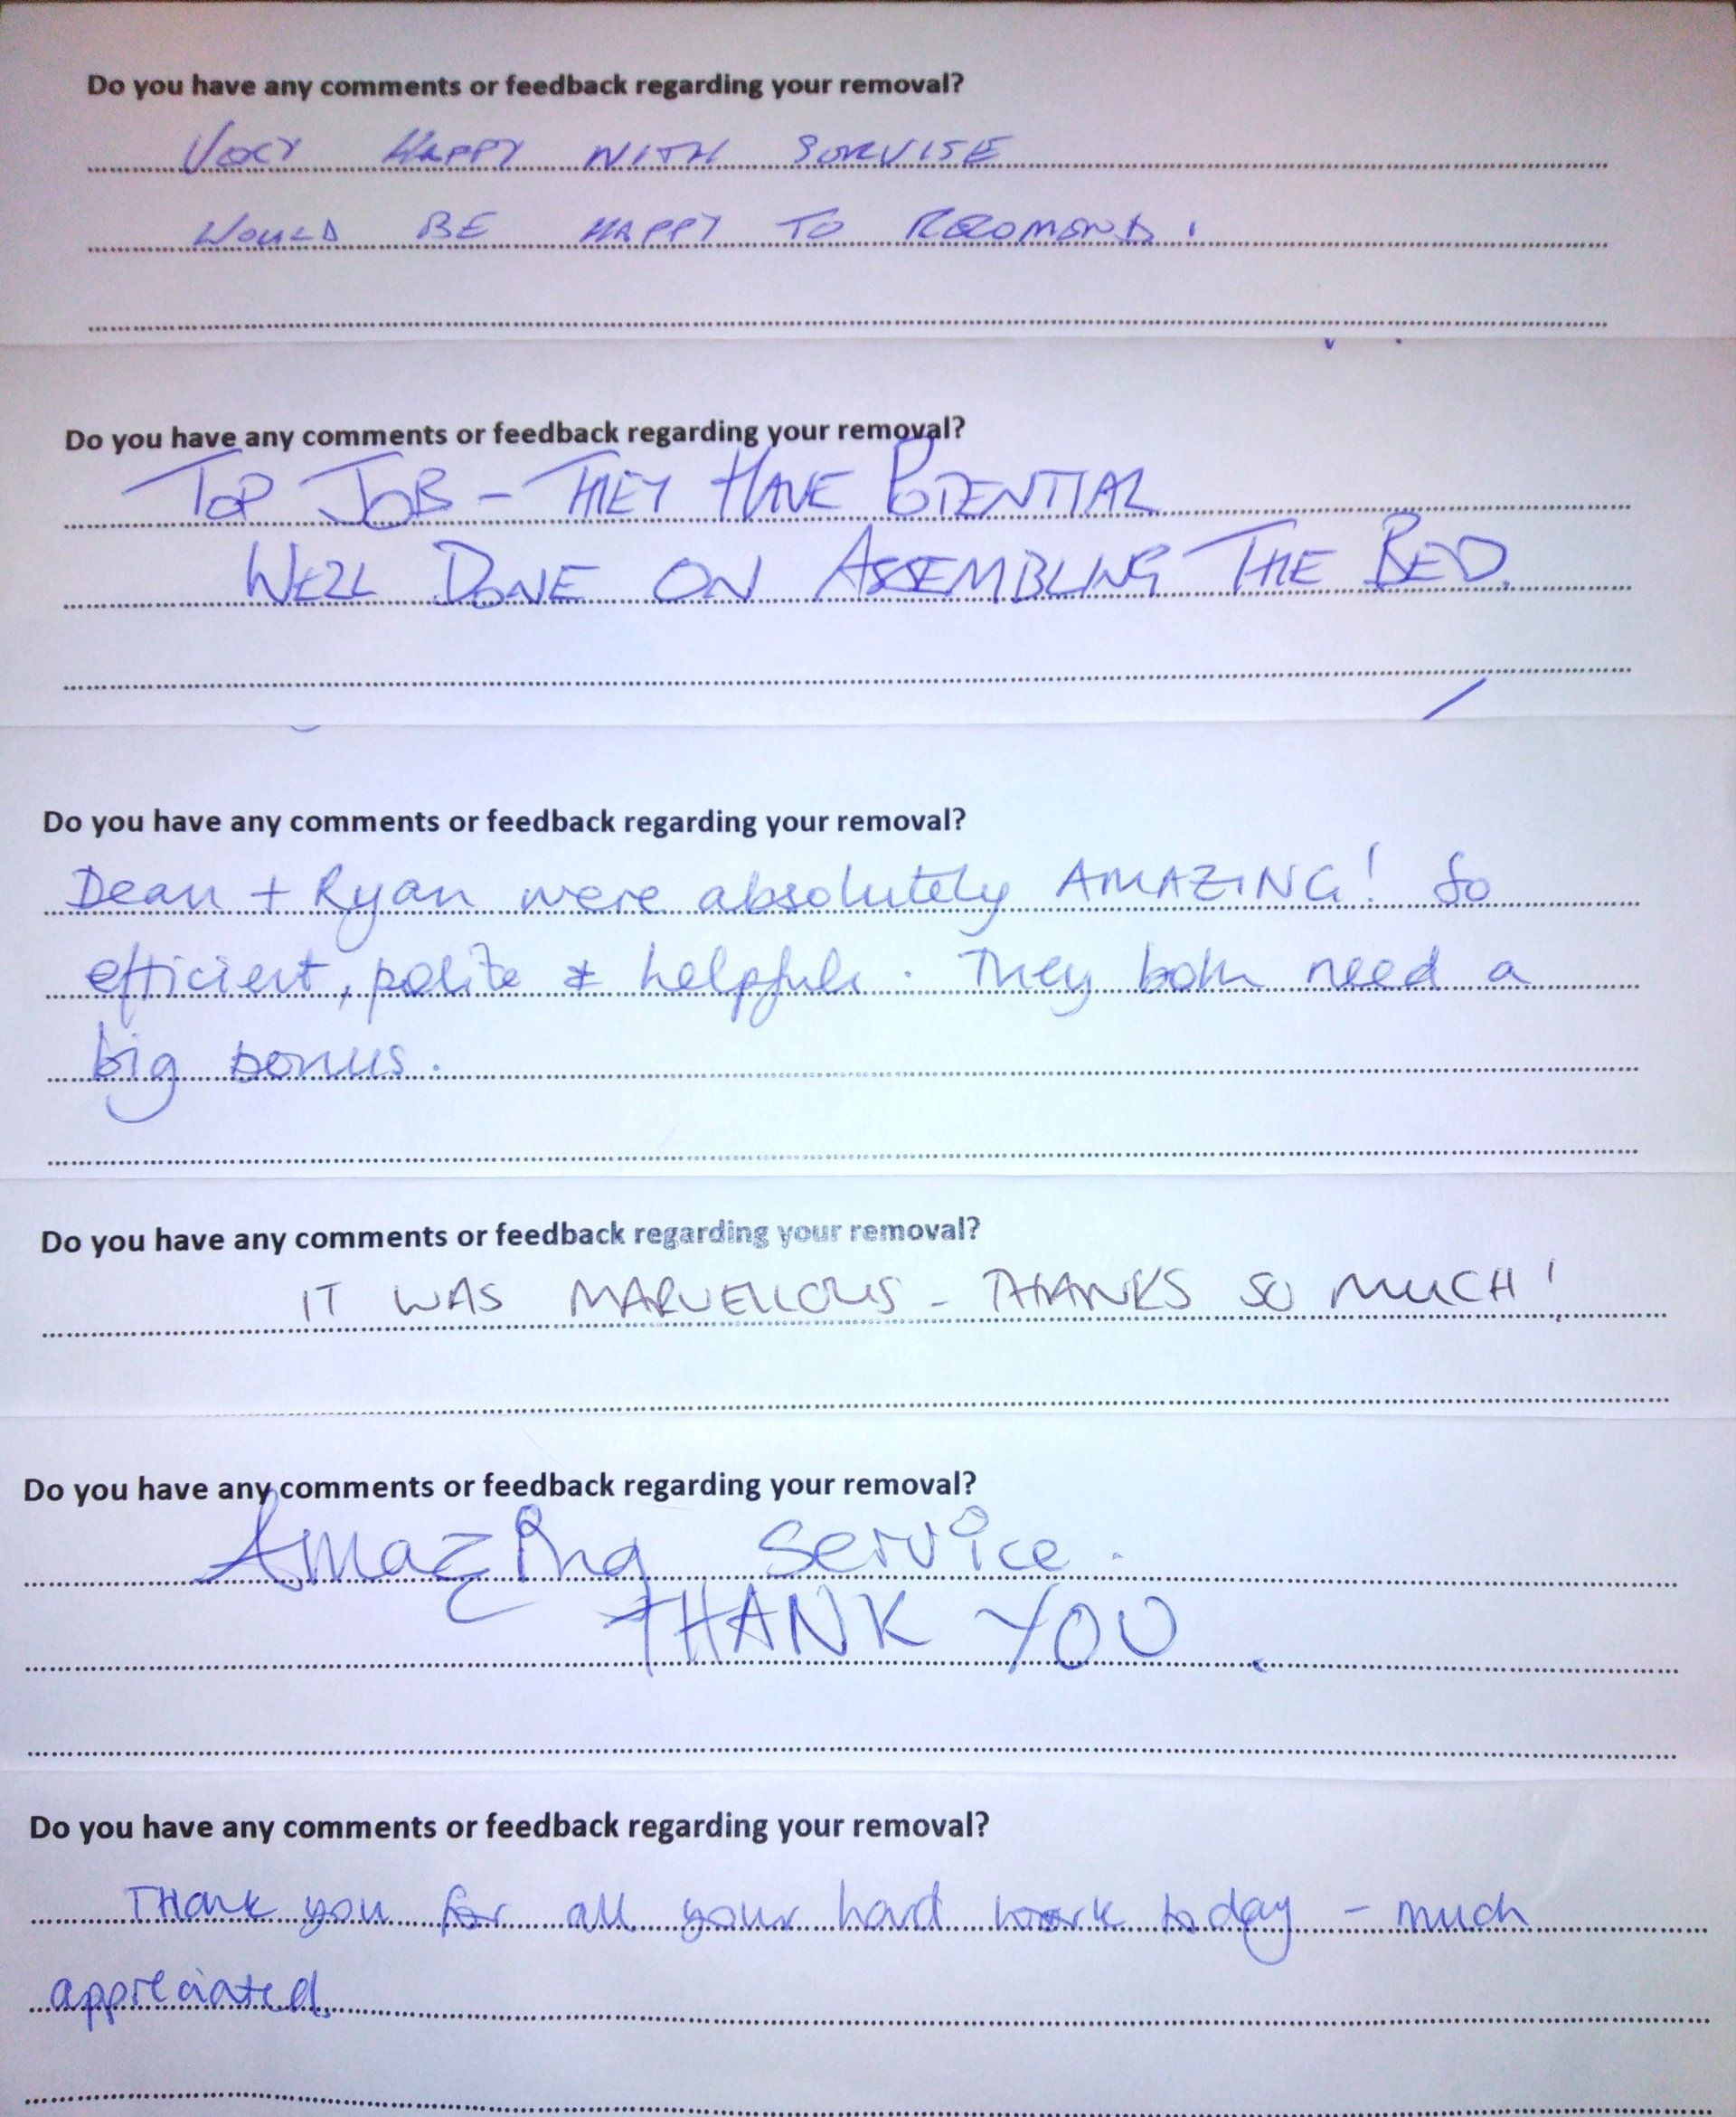 Do you have any comments or feedback regarding your removal?
VERY HAPPY WITH SERVISE
WOULD BE HAPPY TO RECOMEND.
Do you have any comments or feedback regarding your removal?
TOP JOB - THEY HAVE POTENTIAL
WELL DONE ON ASSEMBLING THE BED.
Do you have any comments or feedback regarding your removal?
Dean + Ryan were absolutely AMAZING! So
efficient, polite & helpful. They both need a
big bonus.
Do you have any comments or feedback regarding your removal?
IT WAS MARVELLOUS - THANKS SO MUCH!
Do you have any comments or feedback regarding your removal?
Amazing service.
THANK YOU.
Do you have any comments or feedback regarding your removal?
THank you for all your hard work today - much
appreciated.